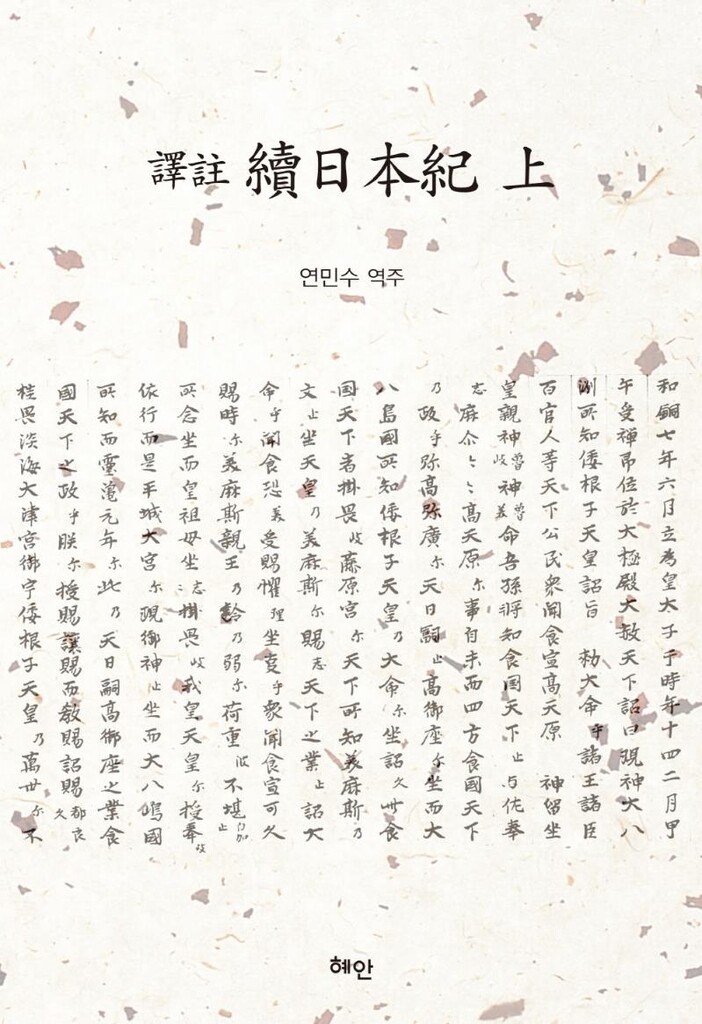 譯註 續日本紀 上
연민수 역주
和銅七年六月立為皇太子于時年十四二月甲
午受禪即位於大極殿大赦天下詔曰現神大八
洲所知倭根子天皇詔旨 勅大命乎諸王諸臣
百官人等天下公民衆聞食宣高天原 神留坐
皇親神魯岐神魯美命吾孫将知食國天下止与佐奉
志麻尓々々高天原尓事自而四方食國天下
乃政乎弥高弥廣尓天日嗣止高御座尓坐而大
八島國所知倭根子天皇乃大命尓坐詔久此食
國天下者掛畏岐藤原宮尓天下所知美麻斯乃
文止坐天皇乃美麻斯尓賜志天下之業止詔大
命乎聞食恐美受賜懼理坐事乎衆聞食宣可久
賜時尓美麻斯親王乃齢乃弱尓荷重波不堪自加止
所念坐而皇祖母坐志掛畏岐我皇天皇尓授奉岐
依行而是平城大宮尓現御神止坐而大八嶋國
所知而靈龜元年尓此乃天日嗣高御座之業食
國天下之政乎朕尓授賜讓賜而教賜詔賜都良久
桂畏淡海大津宮御宇倭根子天皇乃萬世尓不
혜안